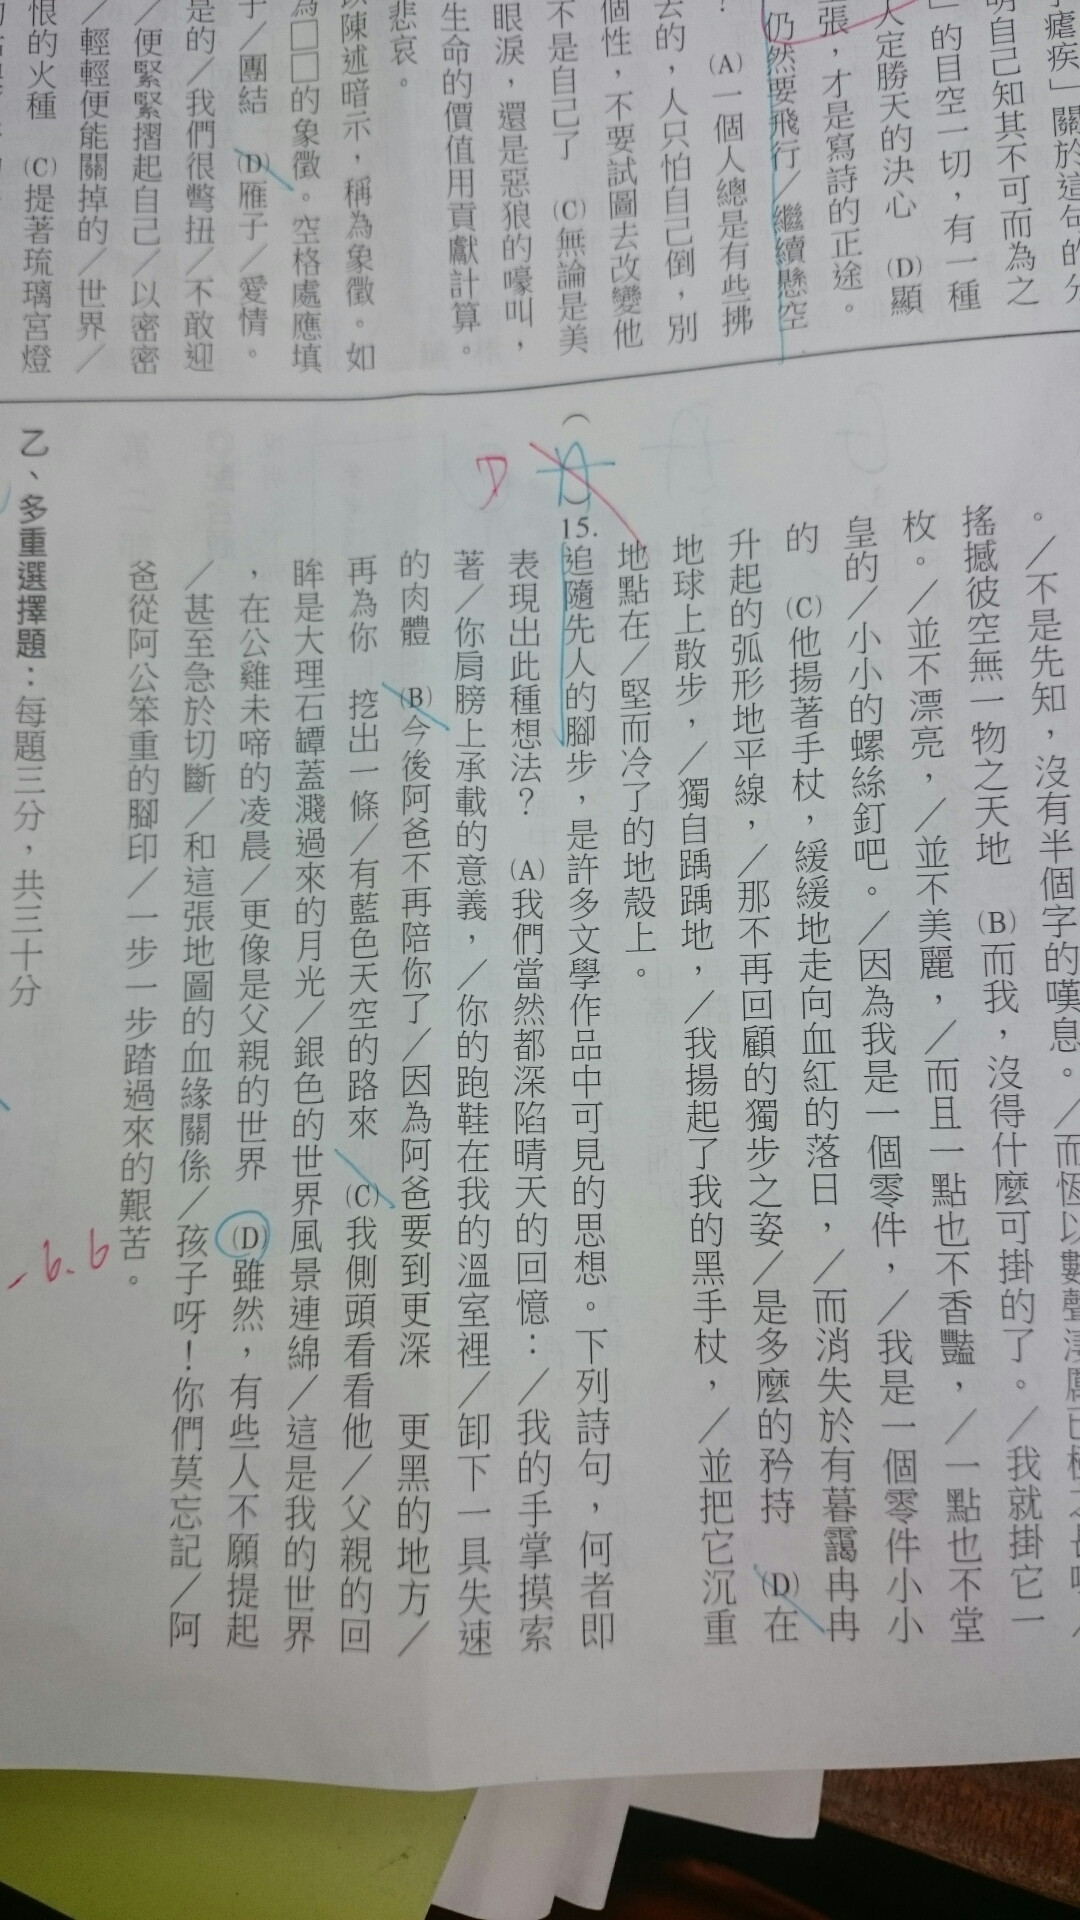 瘧疾」關於這句的
明自己知其不可而為之
」的目空一切，有一種
人定勝天的決心　(D)顯
張，才是寫詩的正途。
仍然要飛行／繼續懸空
？　(A)一個人總是有些拂
去的，人只怕自己倒，別
個性，不要試圖去改變他
不是自己了　(C)無論是美
眼淚，還是惡狼的嚎叫，
生命的價值用貢獻計算。
悲哀。
以陳述暗示，稱為象徵。如
為□□的象徵。空格處應填
子／團結　(D)雁子／愛情。
是的／我們很彆扭／不敢迎
／便緊緊摺起自己／以密密
／輕輕便能關掉的／世界／
恨的火種　(C)提著琉璃宮燈
。／不是先知，沒有半個字的嘆息。／而恆以數聲淒厲已極之
搖撼彼空無一物之天地　(B)而我，沒得什麼可掛的了。／我就掛它一
枚。／並不漂亮，／並不美麗，／而且一點也不香豔，／一點也不堂
皇的／小小的螺絲釘吧。／因為我是一個零件，／我是一個零件小小
的　(C)他揚著手杖，緩緩地走向血紅的落日，／而消失於有暮靄冉冉
升起的弧形地平線，／那不再回顧的獨步之姿／是多麼的矜持　(D)在
地球上散步，／獨自踽踽地，／我揚起了我的黑手杖，／並把它沉重
地點在／堅而冷了的地殼上。
D
（A）15.追隨先人的腳步，是許多文學作品中可見的思想。下列詩句，何者即
表現出此種想法？　(A)我們當然都深陷晴天的回憶：／我的手掌摸索
著／你肩膀上承載的意義，／你的跑鞋在我的溫室裡／卸下一具失速
的肉體　(B)今後阿爸不再陪你了／因為阿爸要到更深　更黑的地方／
再為你　挖出一條／有藍色天空的路來　(C)我側頭看看他／父親的回
眸是大理石罈蓋濺過來的月光／銀色的世界風景連綿／這是我的世界
，在公雞未啼的凌晨／更像是父親的世界　(D)雖然，有些人不願提起
／甚至急於切斷／和這張地圖的血緣關係／孩子呀！你們莫忘記／阿
爸從阿公笨重的腳印／一步一步踏過來的艱苦。
乙、多重選擇題：每題三分，共三十分
-6.6